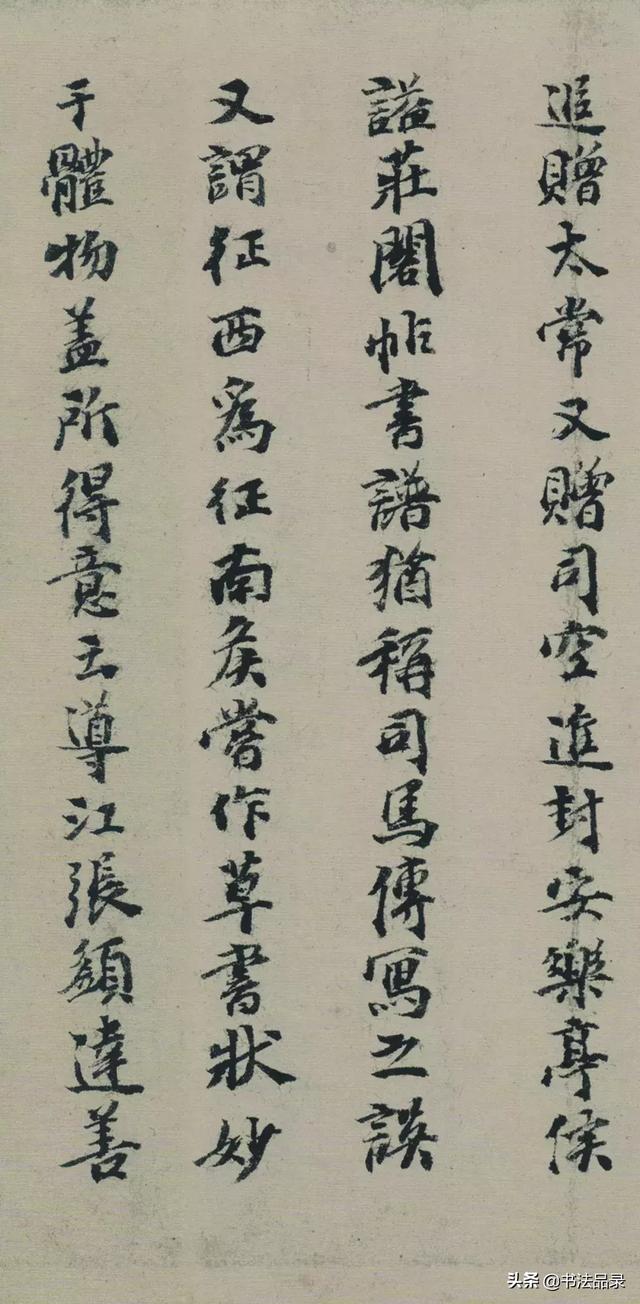 追贈太常又贈司空進封安樂亭侯
謚莊閣帖書譜猶稱司馬傳寫之誤
又謂征西爲征南矦嘗作草書狀妙
于體物盖所得意云導江張達善
头条 @书法品录